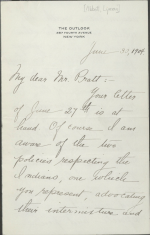 THE OUTLOOK
287 FOURTH AVENUE
NEW YORK
June 30, 1904
My dear Mr. Pratt:-
Your letter
of June 27th is at
hand. Of course I am
aware of the two
policies respecting the
Indians, one which
you represent, advocating
their intermixture and